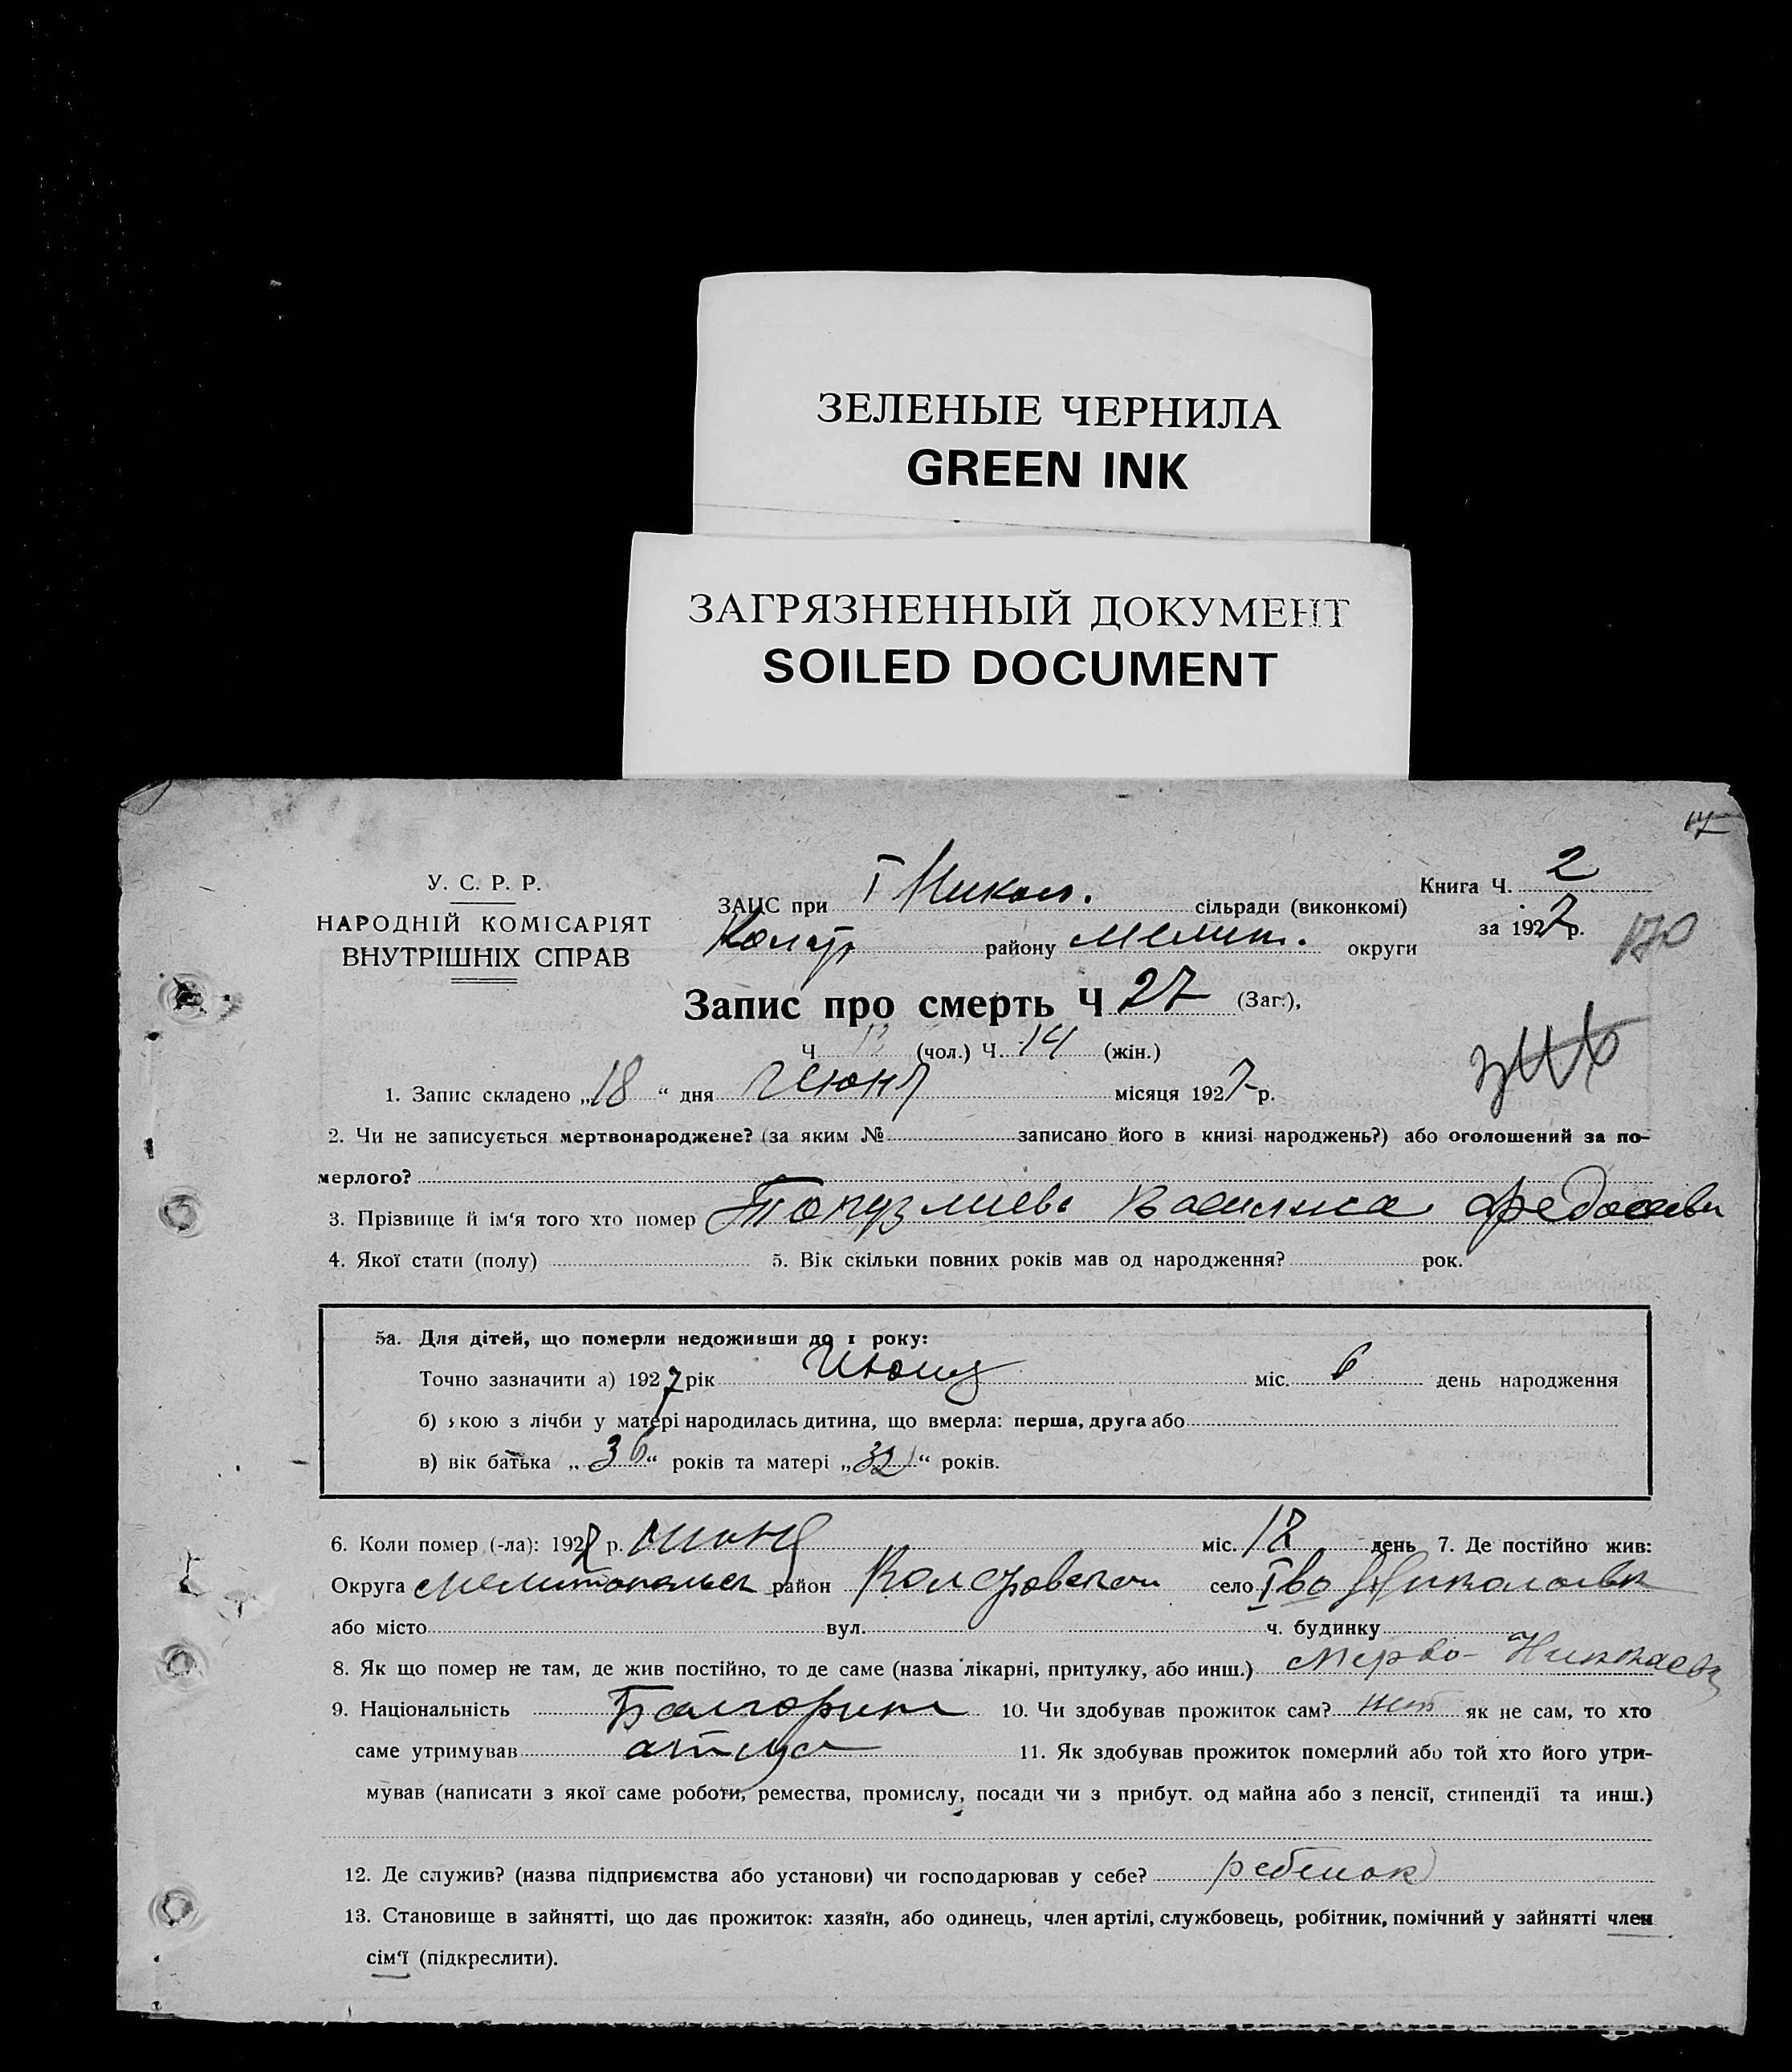 ЗЕЛЕНЫЕ ЧЕРНИЛА
GREEN INK
ЗАГРЯЗНЕННЫЙ ДОКУМЕНТ
SOILED DOCUMENT
У. С. Р. Р.
НАРОДНІЙ КОМІСАРІЯТ
ВНУТРІШНІХ СПРАВ
ЗАЦС при І Никол. сільради (виконкомі)
района Мелит. округи
Книга Ч. 2
за 1927 р.
170
Запис про смерть Ч 27 (Заг.),
Ч 13 (чол.) Ч. 14 (жін.)
1. Запис складено „18“ дня Июня місяця 1927 р.
2. Чи не записується мертвонароджене? (за яким № записано його в книзі народжень?) або оголошений за по-
мерлого?
3. Прізвище й ім'я того хто помер Топузлиева
4. Якої стати (полу) 5. Вік скільки повних років мав од народження? рок.
5а. Для дітей, що померли недоживши до 1 року:
Точно зазначити а) 1927 рік Июня міс. 6 день народження
б) якою з лічби у матері народилась дитина, що вмерла: перша, друга або
в) вік батька „36“ років та матері „32“ років.
6. Коли помер (-ла): 1927 р. июня міс. 12 день 7. Де постійно жив:
Округа Мелитопольск район Коларовском село Іво Николаевк
або місто вул. ч. будинку
8. Як що помер не там, де жив постійно, то де саме (назва лікарні, притулку, або инш.) Перво-Николаевка
9. Національність Болгорин 10. Чи здобував прожиток сам? нет як не сам, то хто
саме утримував отец 11. Як здобував прожиток померлий або той хто його утри-
мував (написати з якої саме роботи, ремества, промислу, посади чи з прибут. од майна або з пенсії, стипендії та инш.)
12. Де служив? (назва підприємства або установи) чи господарював у себе? ребенок
13. Становище в зайнятті, що дає прожиток: хазяїн, або одинець, член артілі, службовець, робітник, помічний у зайнятті член
сім'ї (підкреслити).